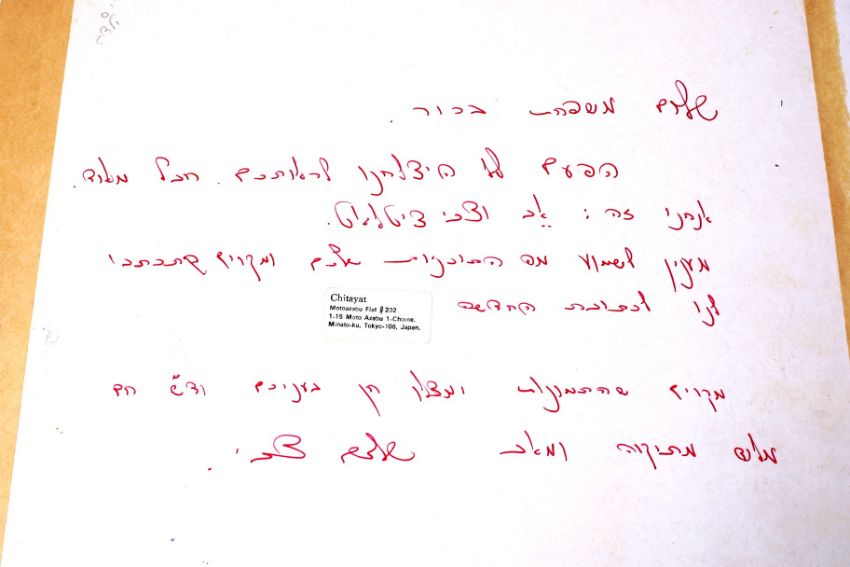 שלום משפחת בכור.
הפעם לא הצלחנו לראותכם. חבל מאוד.
אנחנו זה: אב וצבי ציטיאט.
מענין לשמוע מה התוכניות שלכם ומקווים שתכתבו
לנו לכתובת החדשה
Chitayat
Motoazabu Flat # 202
1-15 Moto Azabu 1-Chome.
Minato-ku, Tokyo-106, Japan.
מקווים שהתמונות ימצאו חן בעניכם ודש חם
מאוד מתיקוה ומאב שלכם צבי.